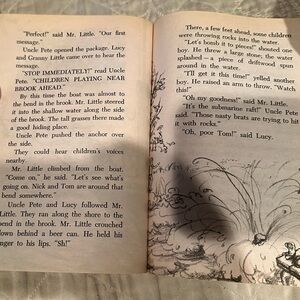 "Perfect!" said Mr. Little. "Our first
message."
Uncle Pete opened the package. Lucy
and Granny Little came over to hear the
message.
"STOP IMMEDIATELY!" read Uncle
Pete. "CHILDREN PLAYING NEAR
BROOK AHEAD."
By this time the boat was almost to
the bend in the brook. Mr. Little steered
it into the shallow water along the side
of the brook. The tall grasses there made
a good hiding place.
Uncle Pete pushed the anchor over
the side.
They could hear children's voices
nearby.
Mr. Little climbed from the boat.
"Come on," he said. "Let's see what's
going on. Nick and Tom are around that
bend somewhere."
Uncle Pete and Lucy followed Mr.
Little. They ran along the shore to the
bend in the brook. Mr. Little crouched
down behind a beer can. He held his
finger to his lips. "Sh!"
There, a few feet ahead, some children
were throwing rocks into the water.
"Let's bomb it to pieces!" shouted one
boy. He threw a large stone; the water
splashed — a piece of driftwood spun
around in the water.
"I'll get it this time!" yelled another
boy. He raised his arm to throw. "Watch
this!"
"Oh my goodness!" said Mr. Little.
"It's the submarine raft!" Uncle Pete
said. "Those nasty brats are trying to hit
it with rocks."
"Oh, poor Tom!" said Lucy.